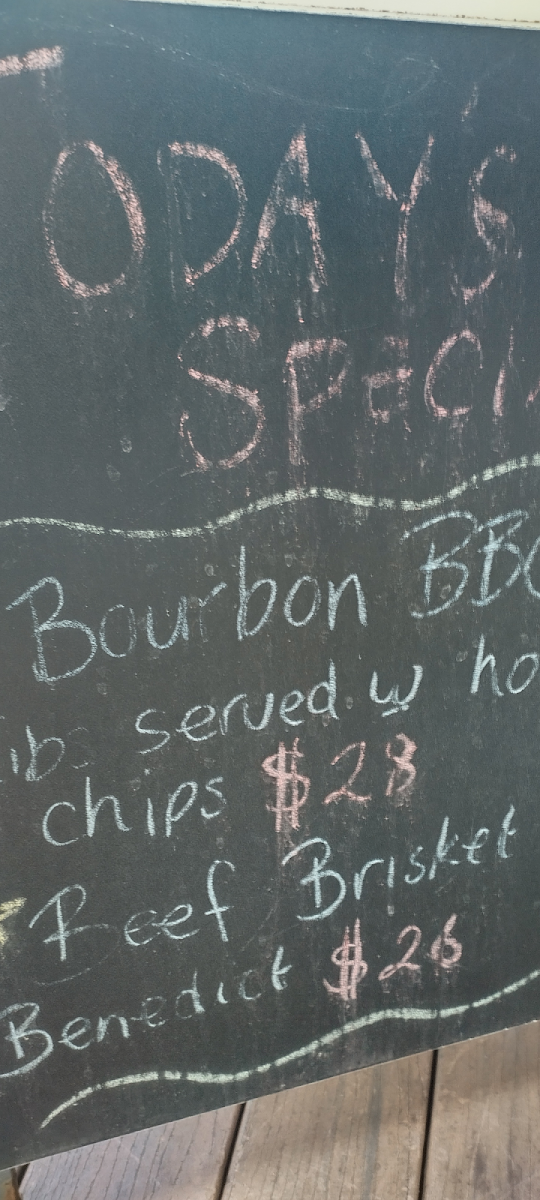 TODAY'S
SPECI
Bourbon BBQ
ibs served w ho
chips $28
Beef Brisket
Benedict $26